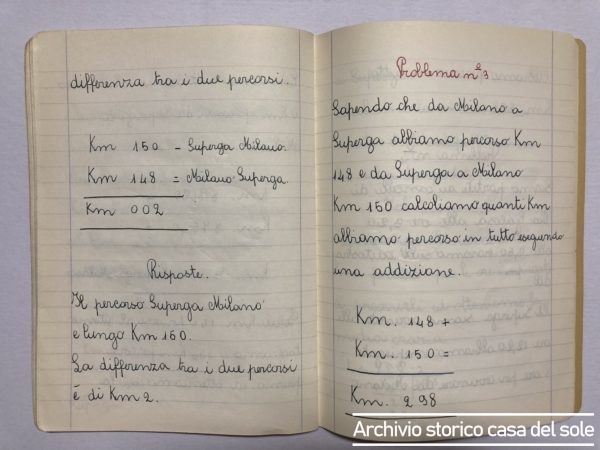 differenza tra i due percorsi.
Km 150 - Superga Milano.
Km 148 = Milano Superga.
Km 002
Risposte.
Il percorso Superga Milano
è lungo Km 160.
La differenza tra i due percorsi
è di Km 2.
Problema n° 3
Sapendo che da Milano a
Superga abbiamo percorso Km
148 e da Superga a Milano
Km 150 calcoliamo quanti Km
abbiamo percorso in tutto eseguendo
una addizione.
Km. 148 +
Km. 150 =
Km. 298
Archivio storico casa del sole